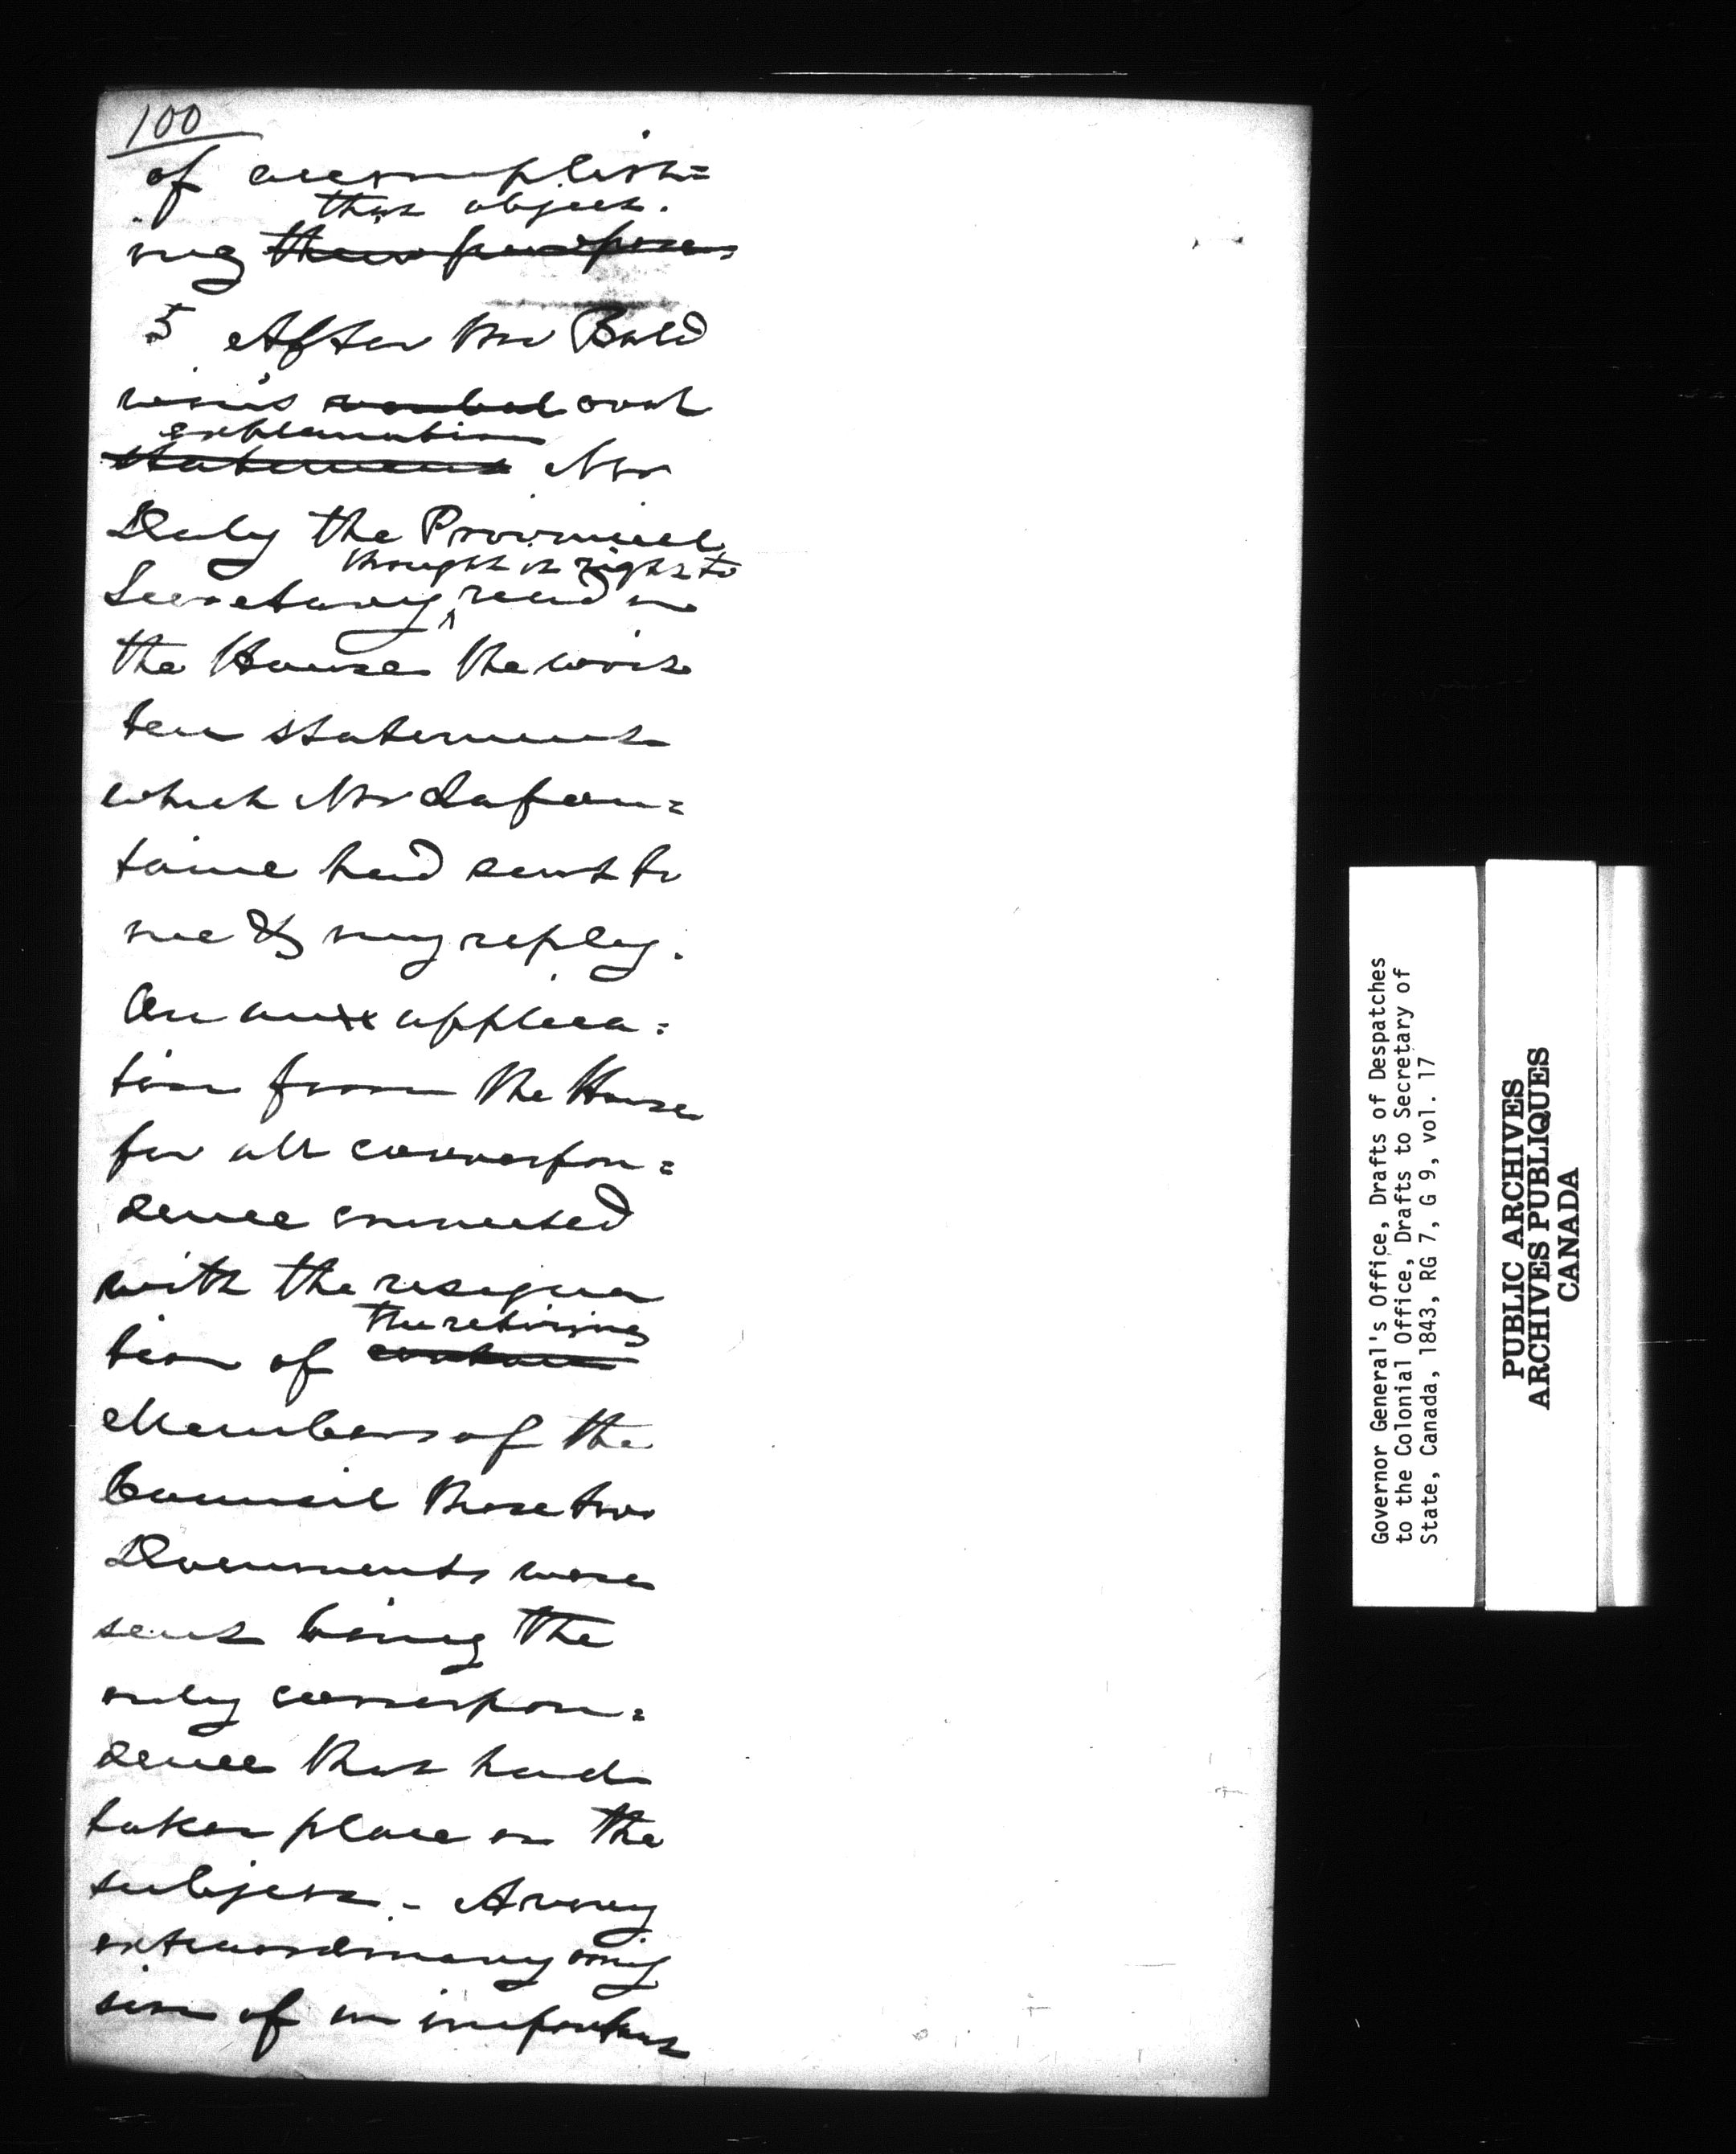 100
of accomplish=
that object.
ing their purpose
5 After Mr Bald
win's verbal oral
explanation
statement Mr
Daly the Provincial
thought it right to
Secretary ^ read in
the House the writ
ten statement
which Mr Lafon=
taine had sent to
me & my reply.
On an applica=
tion from the House
for all correspon=
dence connected
with the resigna
the retiring
tion of certain
Members of the
Council these two
Documents were
sent being the
only correspon=
dence that had
taken place on the
subject. - A very
extraordinary omis
sion of an important
Governor General's Office, Drafts of Despatches
to the Colonial Office, Drafts to Secretary of
State, Canada, 1843, RG 7, G 9, vol. 17
PUBLIC ARCHIVES
ARCHIVES PUBLIQUES
CANADA